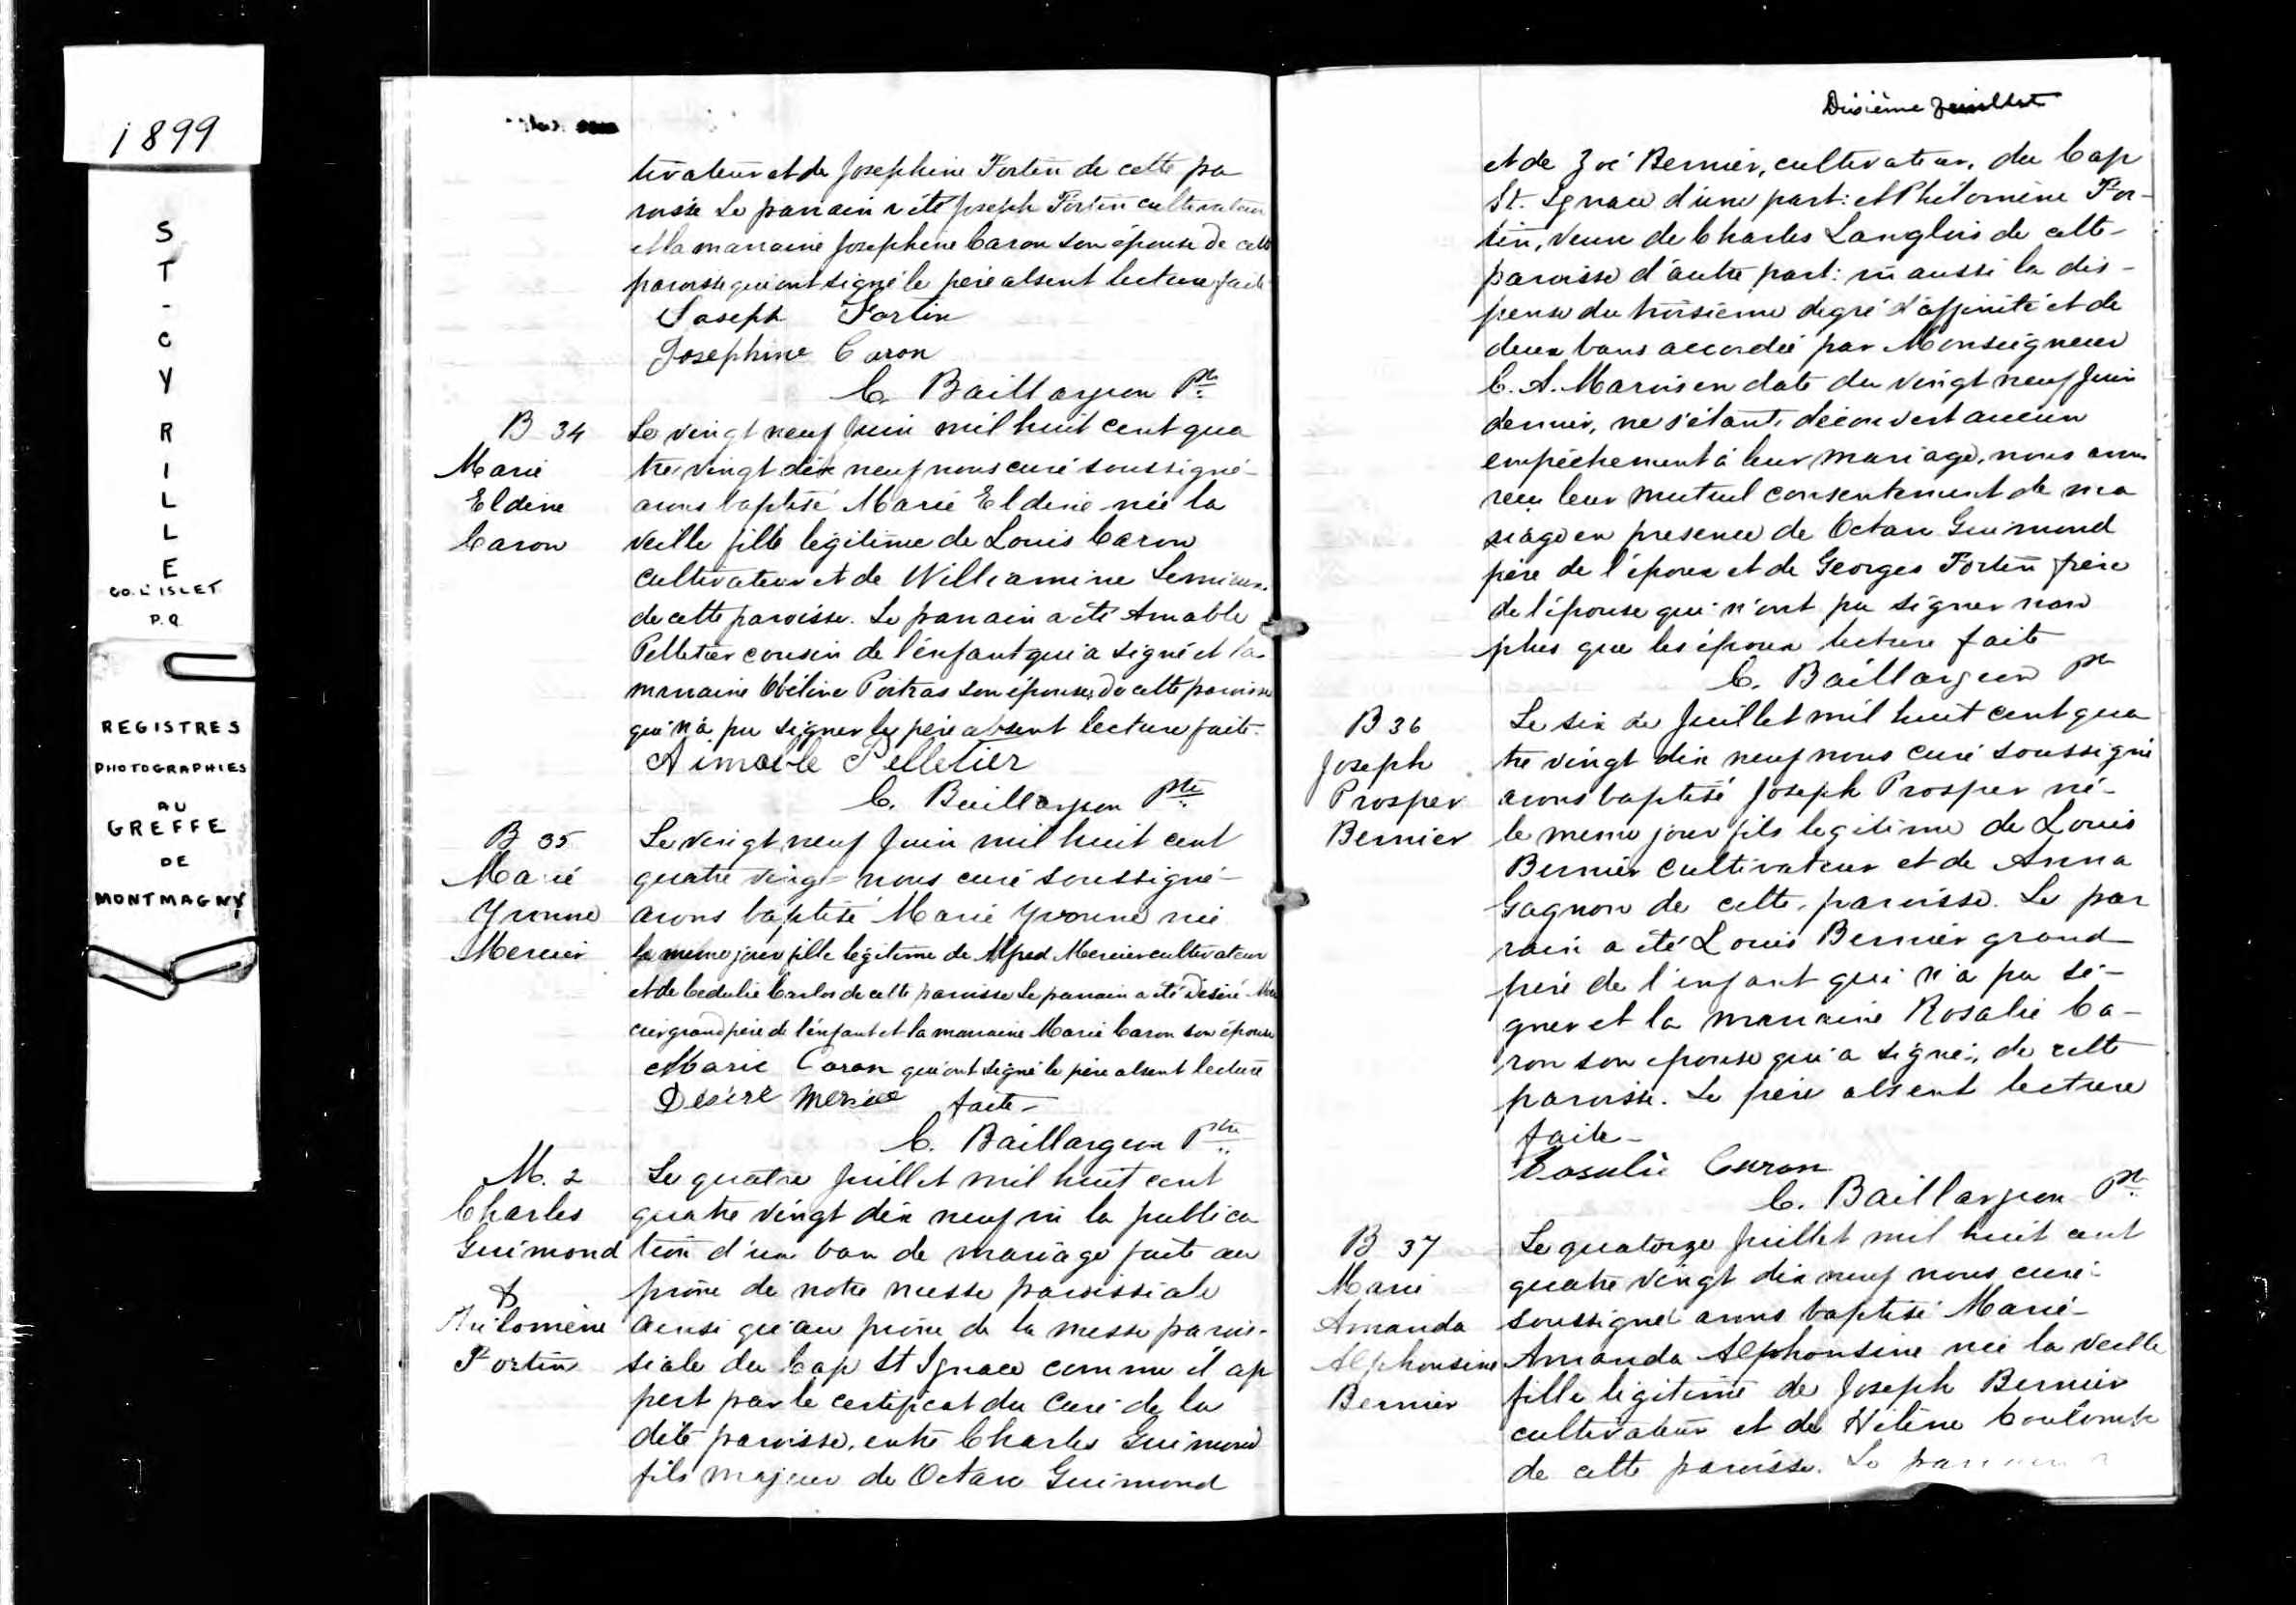 1899
ST-CYRILLE
CO. L'ISLET
P.Q
REGISTRES
PHOTOGRAPHIES
AU
GREFFE
DE
MONTMAGNY
tivateur et de Josephine Fortin de cette pa
roisse Le parrain a été Joseph Fortin cultivateur
et la marraine Josephine Caron son épouse de cette
paroisse qui ont signé le père absent lecture faite
Joseph Fortin
Josephine Caron
C. Baillargeon Ptre
B 34
Marie
Eldine
Caron
Le vingt neuf Juin mil huit cent qua
tre vingt dix neuf nous curé soussigné
avons baptisé Marie Eldine née la
veille fille légitime de Louis Caron
cultivateur et de Williamine Lemieux
de cette paroisse. Le parrain a été Amable
Pelletier cousin de l'enfant qui a signé et la
marraine Obéline Poitras son épouse de cette paroisse
qui n'a pu signer le père absent lecture faite.
Aimable Pelletier
C. Baillargeon Ptre
B 35
Marie
Yvonne
Mercier
Le vingt neuf Juin mil huit cent
quatre vingt nous curé soussigné
avons baptisé Marie Yvonne née
le meme jour fille légitime de Alfred Mercier cultivateur
et de Cedulie de cette paroisse Le parrain a été Désiré Mer
cier grand père de l'enfant et la marraine Marie Caron son épouse
Marie Caron qui ont signé le père absent lecture
Désiré Mercier faite
C. Baillargeon Ptre
M. 2
Charles
Guimond
&
Philomène
Fortin
Le quatre Juillet mil huit cent
quatre vingt dix neuf vu la publica
tion d'un ban de mariage faite au
prône de notre messe paroissiale
ainsi qu'au prône de la messe parois-
siale du Cap St Ignace comme il ap
pert par le certificat du Curé de la
dite paroisse, entre Charles Guimond
fils majeur de Octave Guimond
Dixième Feuillet
et de Zoé Bernier, cultivateur, du Cap
St. Ignace d'une part: et Philomène For-
tin, veuve de Charles Langlois de cette
paroisse d'autre part: vu aussi la dis-
pense du troisième degré d'affinité et de
deux bans accordée par Monseigneur
C. A. Marois en date du vingt neuf Juin
dernier, ne s'étant découvert aucun
empêchement à leur mariage, nous avons
reçu leur mutuel consentement de ma
riage en presence de Octave Guimond
père de l'époux et de Georges Fortin frère
de l'épouse qui n'ont pu signer non
plus que les époux lecture faite
C. Baillargeon Ptre
B 36
Joseph
Prosper
Bernier
Le six de Juillet mil huit cent qua
tre vingt dix neuf nous curé soussigné
avons baptisé Joseph Prosper né
le meme jour fils legitime de Louis
Bernier cultivateur et de Anna
Gagnon de cette paroisse. Le par
rain a été Louis Bernier grand
père de l'enfant qui n'a pu si-
gner et la marraine Rosalie Ca-
ron son epouse qui a signé, de cette
paroisse. Le père absent lecture
faite
Rosalie Caron
C. Baillargeon Ptre
B 37
Marie
Amanda
Alphonsine
Bernier
Le quatorze Juillet mil huit cent
quatre vingt dix neuf nous curé
soussigné avons baptisé Marie
Amanda Alphonsine née la veille
fille légitime de Joseph Bernier
cultivateur et de Hélène Coulombe
de cette paroisse. Le parrain a